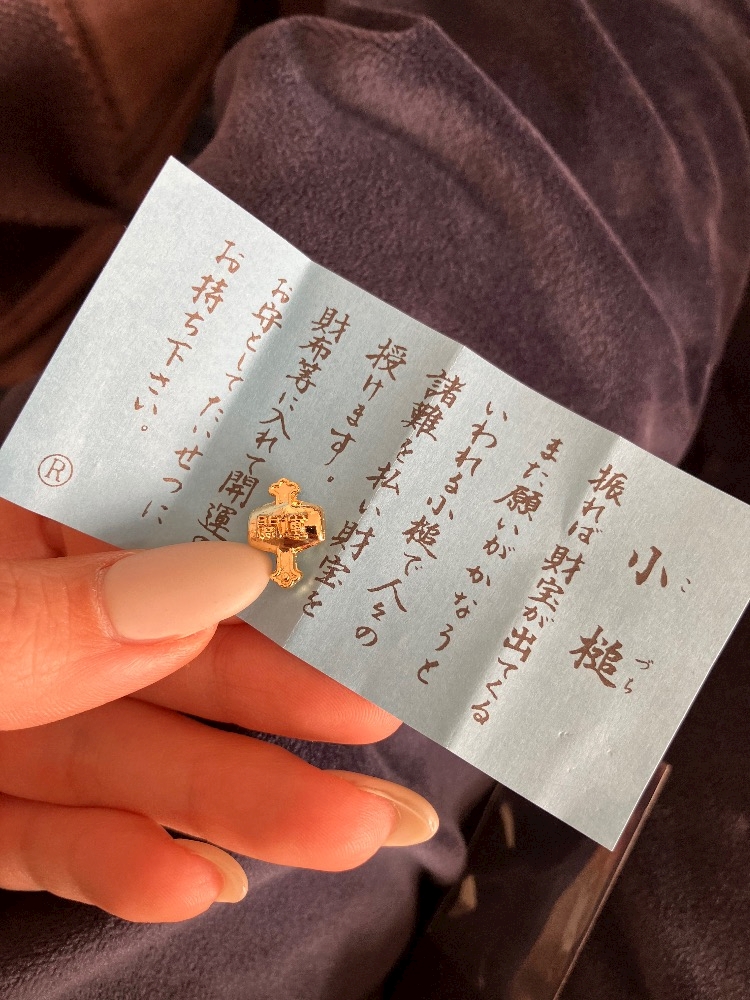 小槌
こづち
振れば財宝が出てくる
また願いがかなうと
いわれる小槌で人々の
諸難を払い財宝を
授けます。
財布等に入れて開運
お守としてたいせつに
お持ち下さい。
Ⓡ
開運